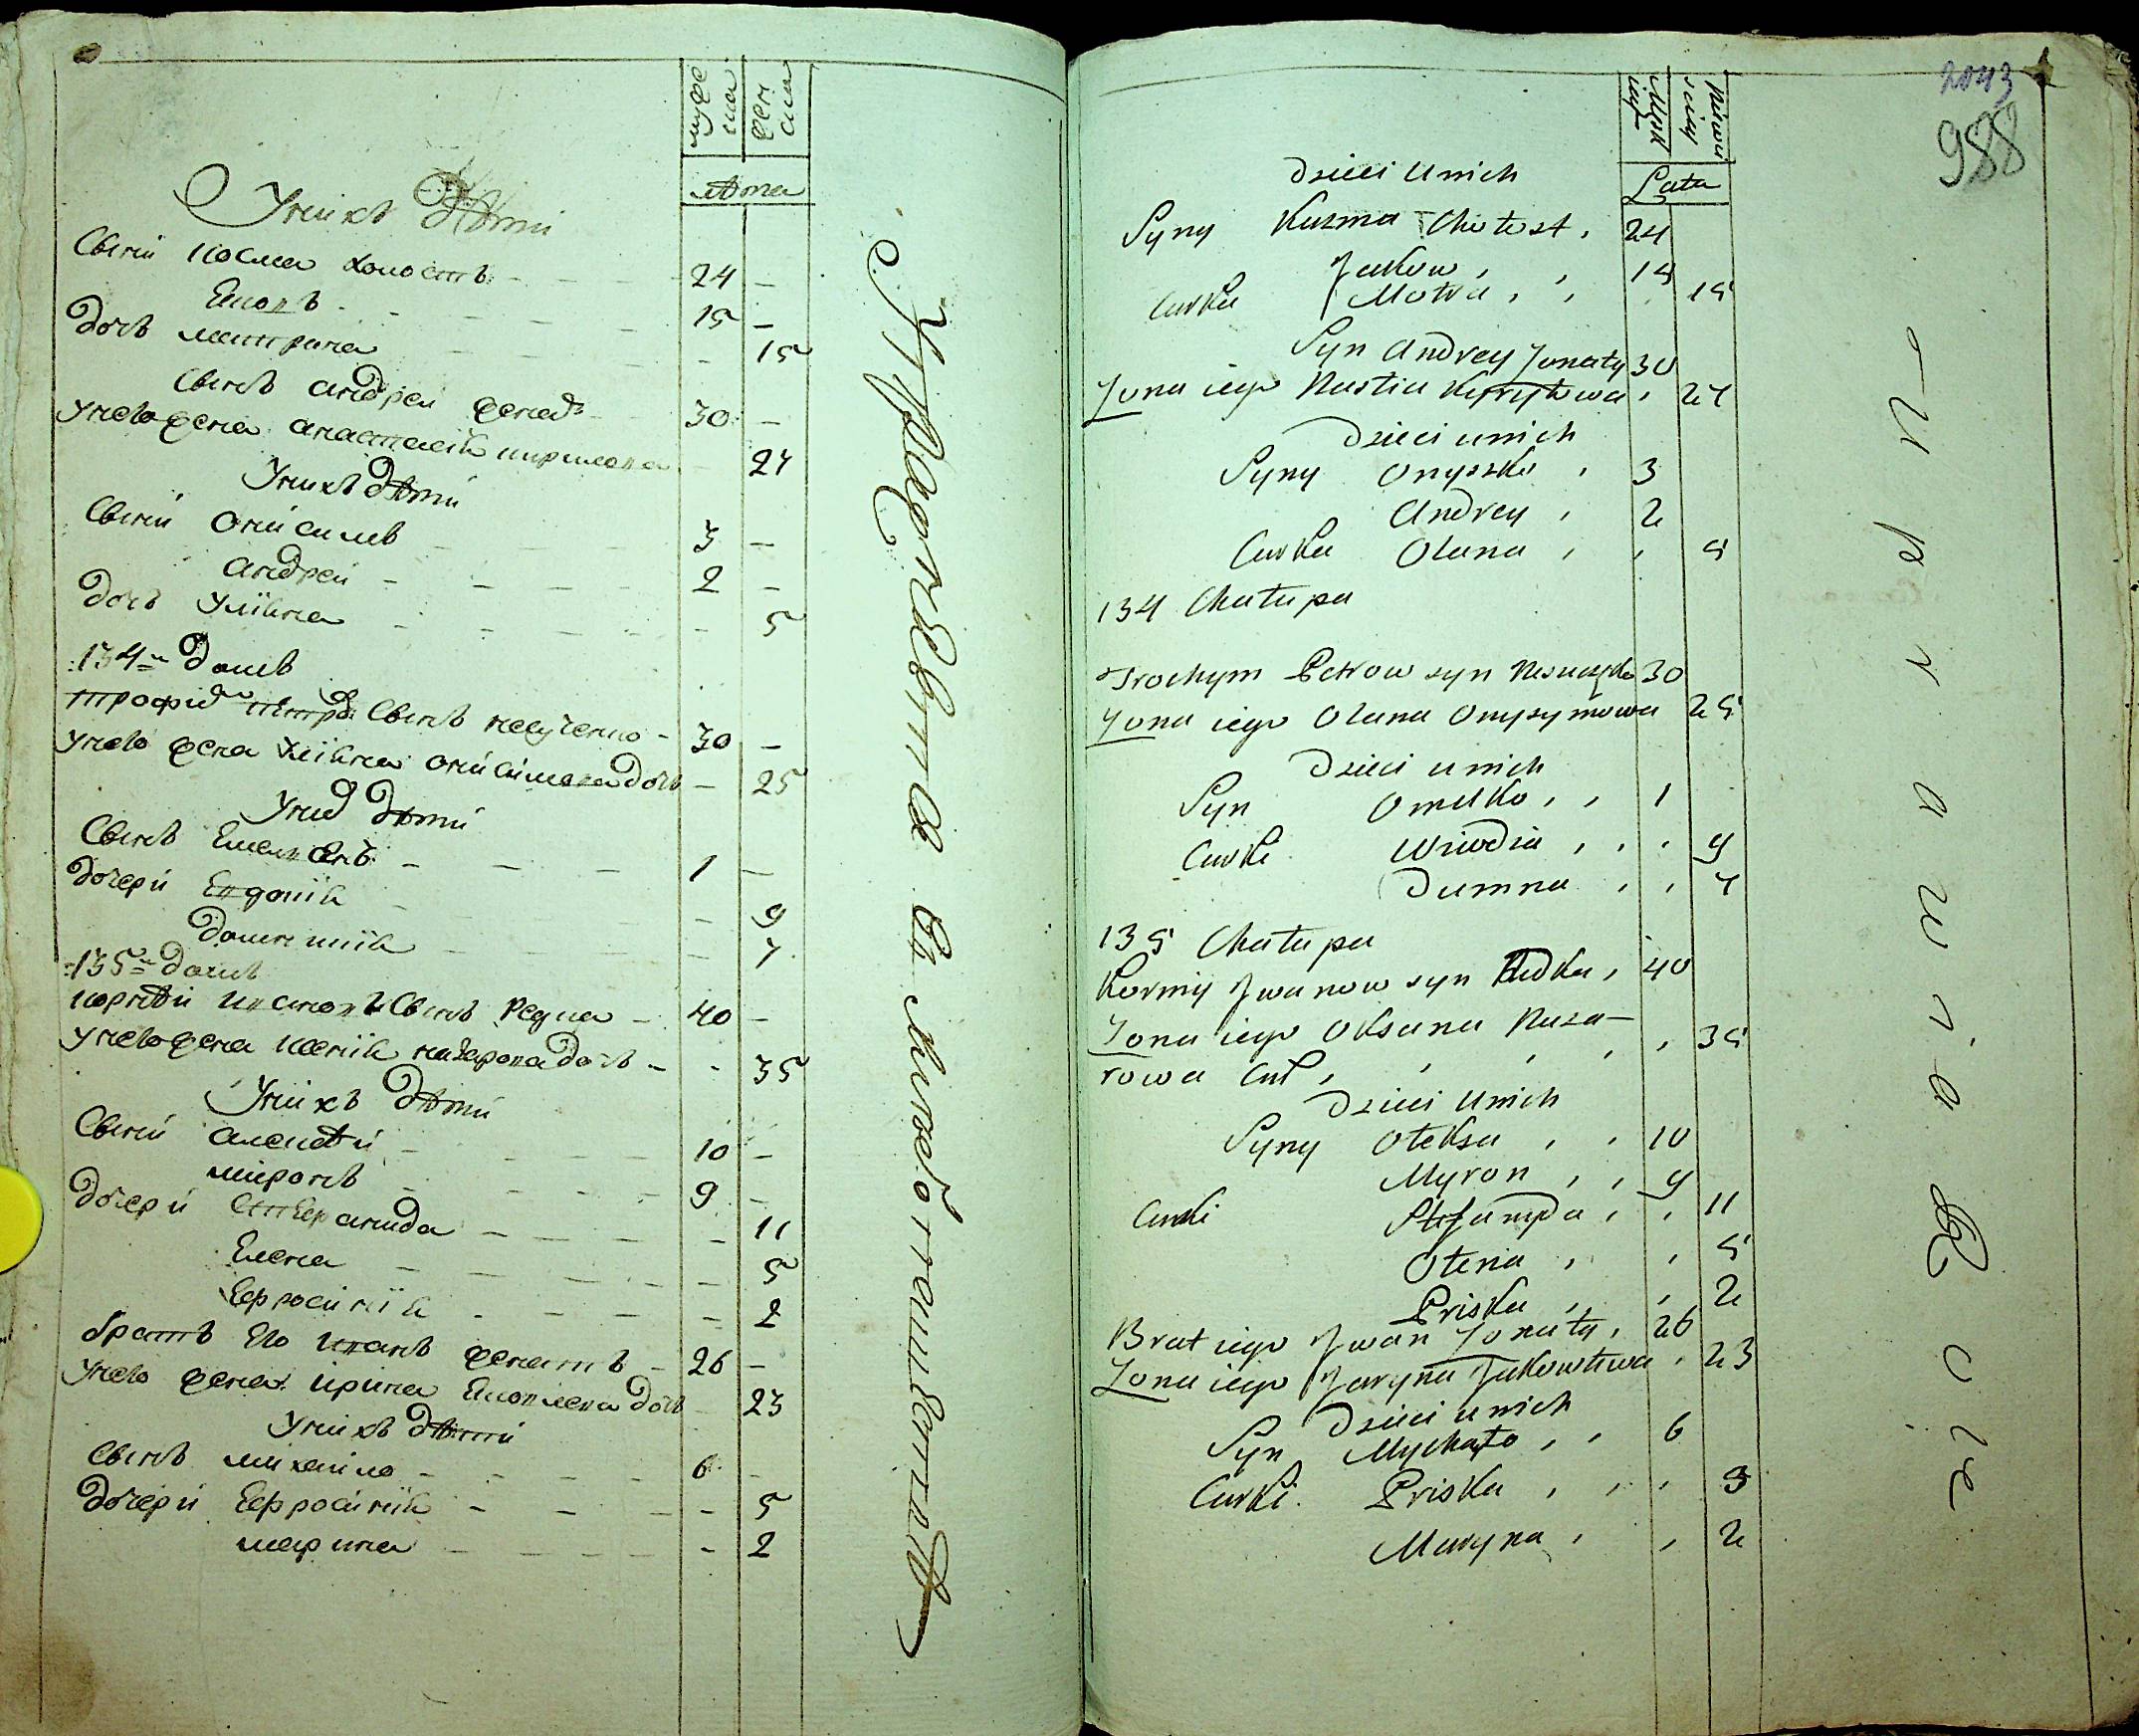 муже
ска
жен
ска
лѣта
У нихъ дѣти
Сыни Косма холостъ 24
Яковъ 15
дочъ матрона 15
Сынъ андреи женатъ 30
У него жена анастасия 27
У нихъ дѣти
Сыни Онисимъ 3
андреи 2
дочъ Улияна 5
134 домъ
трофим Петров Сынъ 30
У него жена Улияна Онисимова дочъ 25
У них дѣти
Сынъ Емелианъ 1
дочери Евдокия 9
домникия 7
135 домъ
корнѣи Ивановъ Сынъ Редка 40
У него жена ксения назарова дочъ 35
У нихъ дѣти
Сыни алексѣи 10
миронъ 9
дочери 11
Елена 5
Ефросиния 2
братъ его Иванъ женатъ 26
У него жена ирина Яковлева дочъ 23
У нихъ дѣти
Сынъ михаило 6
дочери Ефросиния 5
марина 2
2043
988
Męsk
Lata
Dzieci u nich
Syny Kuzma Chołost, 24
Jakow, , 15
Curka Motra, , 15
Syn Andrey Żonaty 30
Żona iego Nastia , 27
Dzieci u nich
Syny Onyszko , 3
Andrey , 2
Curka Olana , , 5
134 Chałupa
Trochym Petrow syn 30
Żona iego Olana Onysymowa 25
Dzieci u nich
Syn Omelko, , 1
Curki Wiwdia , , , 9
Dumna , , 7
135 Chałupa
Korniy Iwanow syn Redka, 40
Żona iego Oksana Naza-
rowa Cur, , , , , 35
Dzieci u nich
Syny Oleksa , , 10
Myron , , 9
Curki , , 11
Olena , , 5
Priska , , 2
Brat iego Iwan Żonaty, 26
Żona iego Jaryna Jakowliwa , 23
Dzieci u nich
Syn Mychayło , , 6
Curki Priska , , , 5
Maryna , , 2